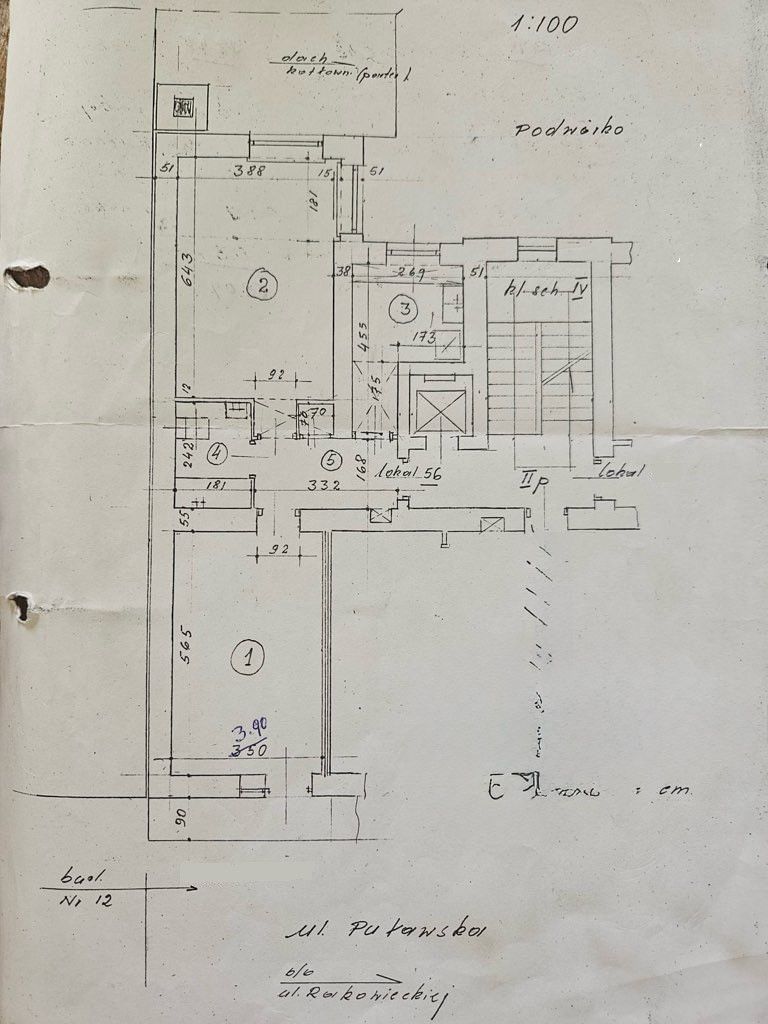 1:100
dach
kotłowni (parter)
Podwórko
51
388
15
51
181
643
2
38
269
51
kl. sch. IV
3
455
173
92
175
12
70
70
4
5
242
168
lokal 56
II p
lokal
181
332
55
92
565
1
3.90
350
cm
90
bud.
Nr 12
ul. Puławska
ul. Rakowieckiej